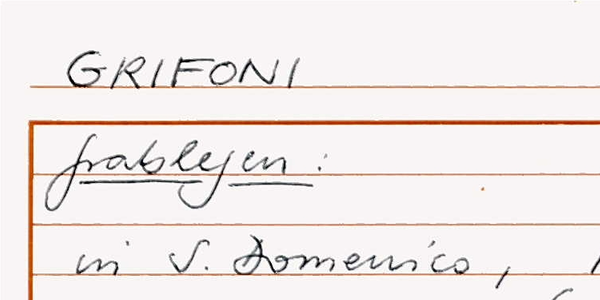 GRIFONI
Grablegen:
in S. Domenico,